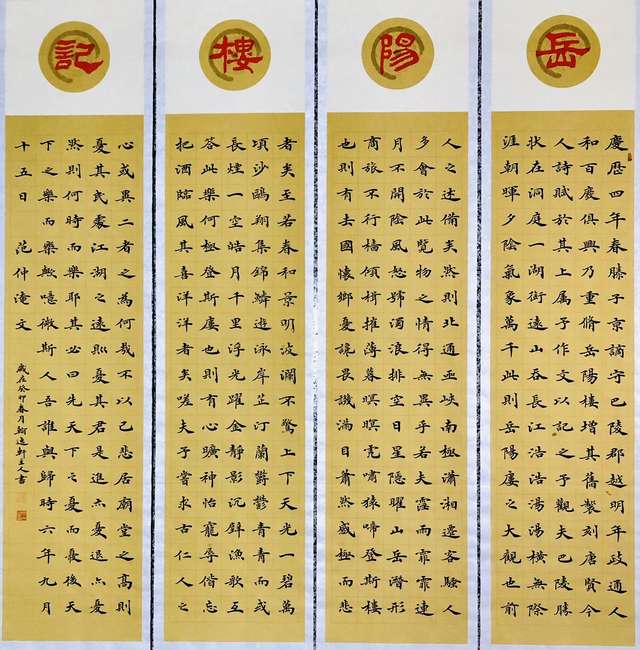 岳
慶歷四年春滕子京謫守巴陵郡越明年政通人
和百廢俱興乃重脩岳陽樓增其舊製刻唐賢今
人詩賦於其上属予作文以記之予觀夫巴陵勝
状在洞庭一湖銜遠山吞長江浩浩湯湯横無際
涯朝暉夕陰氣象萬千此則岳陽樓之大觀也前
陽
人之述備矣然則北通巫峽南極瀟湘遷客騷人
多會於此覽物之情得無異乎若夫霪雨霏霏連
月不開陰風怒號濁浪排空日星隱曜山岳潛形
商旅不行檣傾楫摧薄暮暝暝虎嘯猿啼登斯樓
也則有去國懷鄉憂讒畏譏滿目蕭然感極而悲
樓
者矣至若春和景明波瀾不驚上下天光一碧萬
頃沙鷗翔集錦鱗遊泳岸芷汀蘭鬱鬱青青而或
長煙一空皓月千里浮光躍金静影沉璧漁歌互
答此樂何極登斯樓也則有心曠神怡寵辱偕忘
把酒臨風其喜洋洋者矣嗟夫予嘗求古仁人之
記
心或異二者之為何哉不以己悲居廟堂之高則
憂其民處江湖之遠則憂其君是進亦憂退亦憂
然則何時而樂耶其必曰先天下之憂而憂後天
下之樂而樂歟噫微斯人吾誰與歸時六年九月
十五日 范仲淹文
歲在癸卯春月翰逸軒主人書